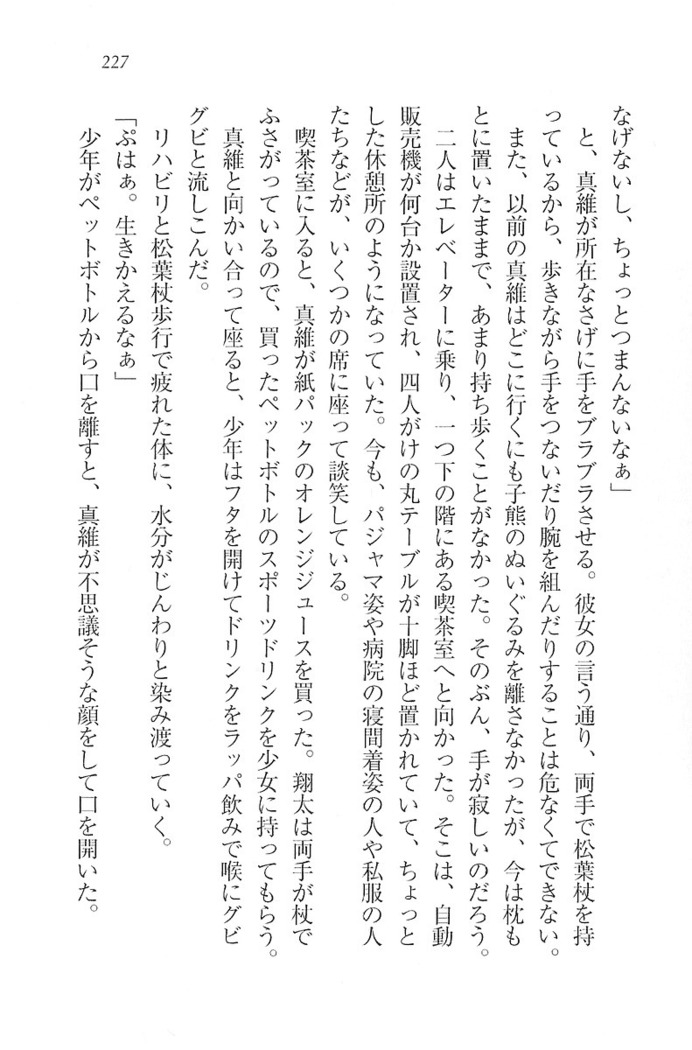 227
なげないし、ちょっとつまんないなぁ」
と、真維が所在なさげに手をブラブラさせる。彼女の言う通り、両手で松葉杖を持
っているから、歩きながら手をつないだり腕を組んだりすることは危なくてできない。
また、以前の真維はどこに行くにも子熊のぬいぐるみを離さなかったが、今は枕も
とに置いたままで、あまり持ち歩くことがなかった。そのぶん、手が寂しいのだろう。
二人はエレベーターに乗り、一つ下の階にある喫茶室へと向かった。そこは、自動
販売機が何台か設置され、四人がけの丸テーブルが十脚ほど置かれていて、ちょっと
した休憩所のようになっていた。今も、パジャマ姿や病院の寝間着姿の人や私服の人
たちなどが、いくつかの席に座って談笑している。
喫茶室に入ると、真維が紙パックのオレンジジュースを買った。翔太は両手が杖で
ふさがっているので、買ったペットボトルのスポーツドリンクを少女に持ってもらう。
真維と向かい合って座ると、少年はフタを開けてドリンクをラッパ飲みで喉にグビ
グビと流しこんだ。
リハビリと松葉杖歩行で疲れた体に、水分がじんわりと染み渡っていく。
「ぷはぁ。生きかえるなぁ」
少年がペットボトルから口を離すと、真維が不思議そうな顔をして口を開いた。